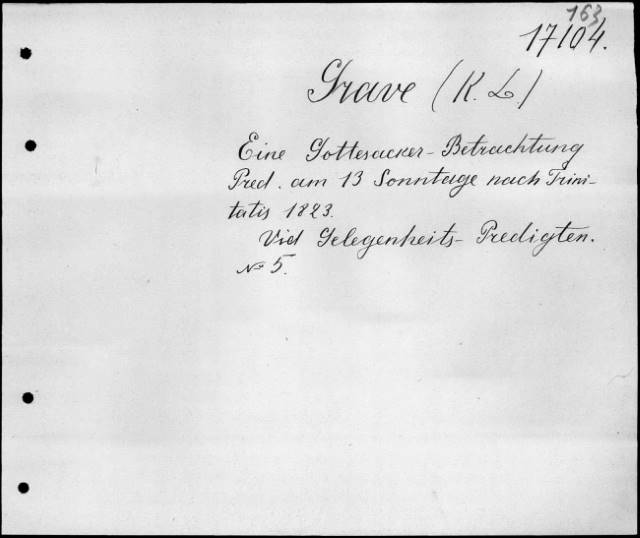 163
17104.
Grave (K. L.)
Eine Gottesacker-Betrachtung
Pred. am 13 Sonntage nach Trini-
tatis 1823.
Vid Gelegenheits-Predigten.
№ 5.